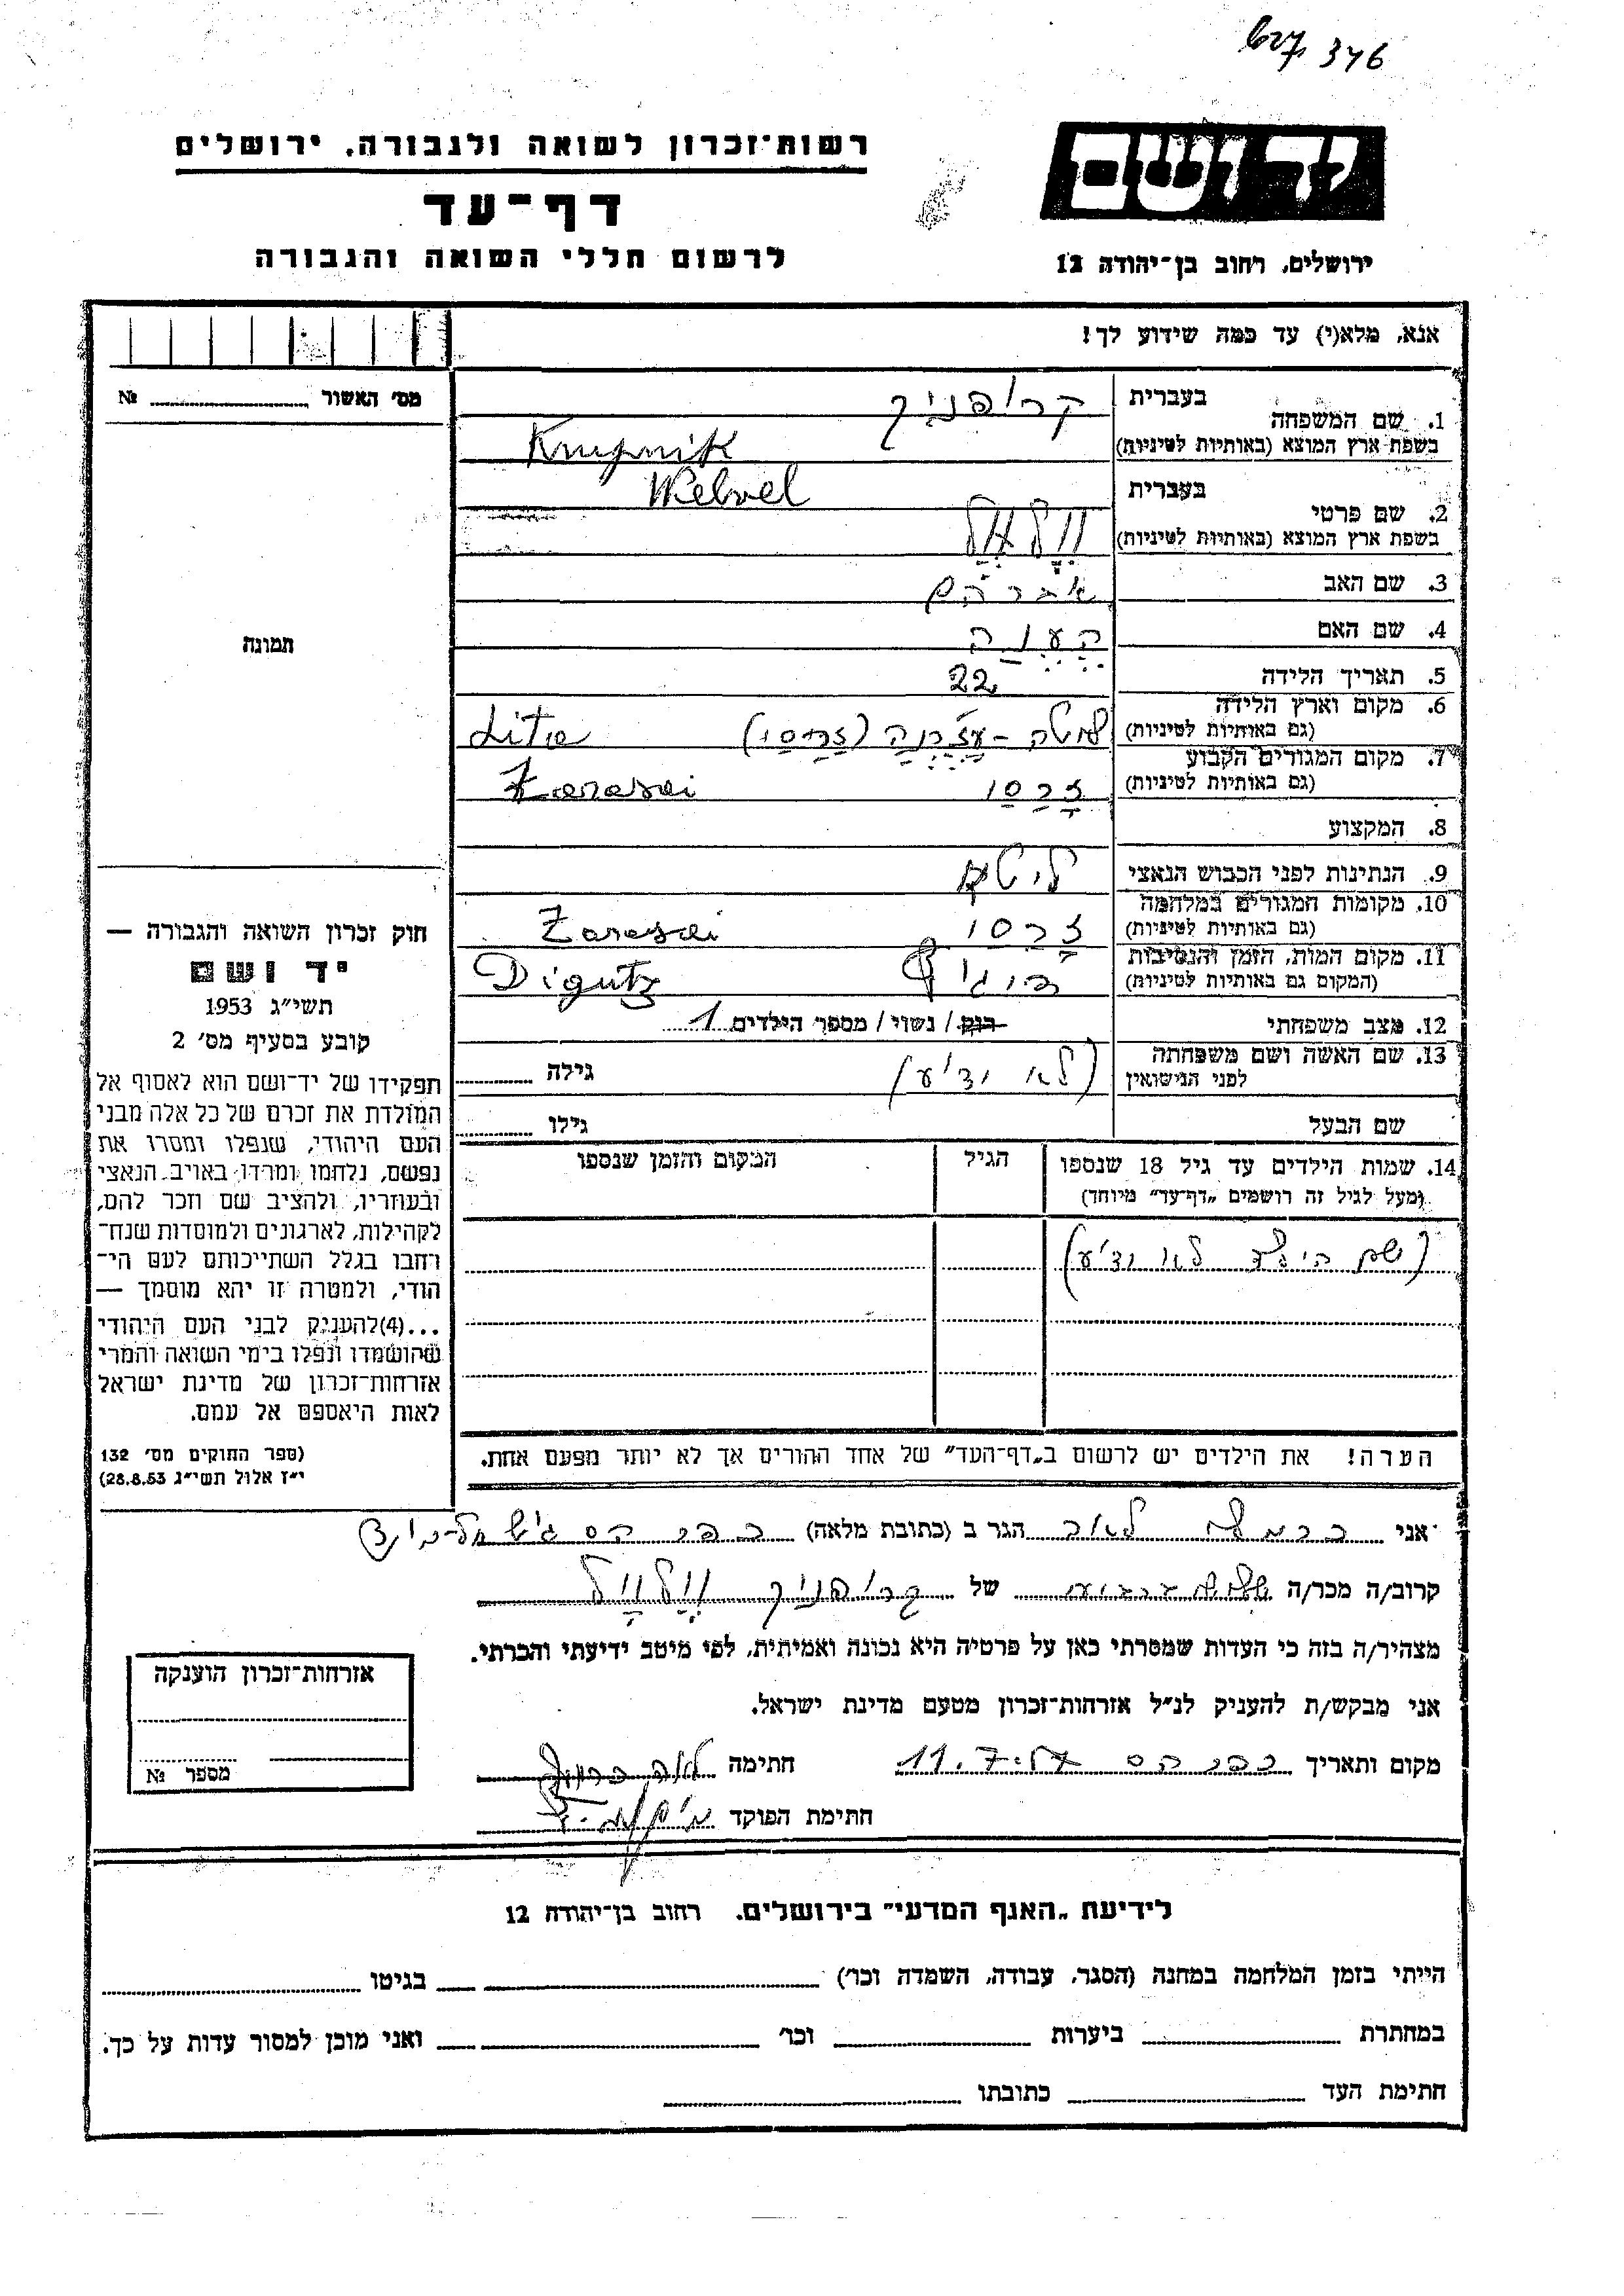 346
רשות־זכרון לשואה ולגבורה. ירושלים
דף־עד
לרשום חללי השואה והגבורה
יד ושם
ירושלים. רחוב בן־יהודה 12
אנא, מלא(י) עד כמה שידוע לך!
מס׳ האשור № ........
תמונה
1. שם המשפחה
בעברית קרופניק
בשפת ארץ המוצא (באותיות לטיניות) Krupnik
2. שם פרטי
בעברית Welvel
בשפת ארץ המוצא (באותיות לטיניות)
3. שם האב אברהם
4. שם האם
5. תאריך הלידה 22
6. מקום וארץ הלידה (גם באותיות לטיניות) (זרסי) Lita
7. מקום המגורים הקבוע (גם באותיות לטיניות) זרסי Zarasai
8. המקצוע
9. הנתינות לפני הכבוש הנאצי ליטא
10. מקומות המגורים במלחמה (גם באותיות לטיניות) זרסי Zarasai
11. מקום המות, הזמן והנסיבות (המקום גם באותיות לטיניות) Digutz
12. מצב משפחתי רוק / נשוי / מספר הילדים 1
13. שם האשה ושם משפחתה לפני הנישואין (לא ידוע) גילה ........
שם הבעל גילו ........
14. שמות הילדים עד גיל 18 שנספו
(מעל לגיל זה רושמים „דף־עד״ מיוחד)
הגיל
המקום והזמן שנספו
(שם הילד לא ידוע)
הערה! את הילדים יש לרשום ב„דף־העד״ של אחד ההורים אך לא יותר מפעם אחת.
חוק זכרון השואה והגבורה —
יד ושם
תשי״ג 1953
קובע בסעיף מס׳ 2
תפקידו של יד־ושם הוא לאסוף אל
המולדת את זכרם של כל אלה מבני
העם היהודי, שנפלו ומסרו את
נפשם, נלחמו ומרדו באויב הנאצי
ובעוזריו, ולהציב שם וזכר להם,
לקהילות, לארגונים ולמוסדות שנח־
רבו בגלל השתייכותם לעם הי־
הודי, ולמטרה זו יהא מוסמך —
...(4)להעניק לבני העם היהודי
שהושמדו ונפלו בימי השואה והמרי
אזרחות־זכרון של מדינת ישראל
לאות היאספם אל עמם.
(ספר החוקים מס׳ 132
י״ז אלול תשי״ג 28.8.53)
אני כרמל לאה הגר ב (כתובת מלאה)
קרוב/ה מכר/ה של קרופניק
מצהיר/ה בזה כי העדות שמסרתי כאן על פרטיה היא נכונה ואמיתית, לפי מיטב ידיעתי והכרתי.
אני מבקש/ת להעניק לנ״ל אזרחות־זכרון מטעם מדינת ישראל.
מקום ותאריך 11.7.57 חתימה לאה כרמל
חתימת הפוקד
אזרחות־זכרון הוענקה
מספר №
לידיעת „האגף המדעי״ בירושלים. רחוב בן־יהודה 12
הייתי בזמן המלחמה במחנה (הסגר, עבודה, השמדה וכו׳) ........ בגיטו ........
במחתרת ........ ביערות ........ וכו׳ ........ ואני מוכן למסור עדות על כך.
חתימת העד ........ כתובתו ........